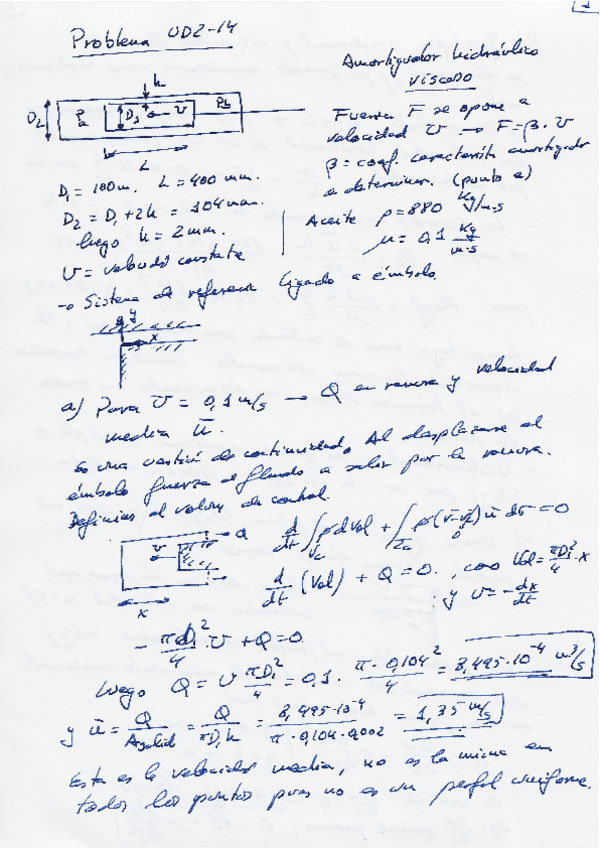 Problema UD2-14
Amortiguador hidráulico
viscoso
Fuerza F se opone a
velocidad v → F = β · v
β = coef. característ. amortiguador
a determinar. (punto a)
Aceite ρ = 880 Kg/m·s
μ = 0,1 Kg/m·s
D₂ Pa D₁ h v Pb
L
D₁ = 100 m. L = 400 mm.
D₂ = D₁ + 2h = 104 mm.
luego h = 2 mm.
v = velocidad constante
→ Sistema de referencia ligado a émbolo.
y
x
a) Para v = 0,1 m/s → Q en ranura y velocidad
media ū.
Es una cuestión de continuidad. Al desplazarse el
émbolo fuerza al fluido a salir por la ranura.
Definimos el volumen de control.
v Q x
d/dt ∫Vc ρ dVol + ∫Σc ρ (v̄ - v̄c) n̄ dσ = 0
d/dt (Vol) + Q = 0. , como Vol = πD₁²/4 · x
y v = - dx/dt
- πD₁²/4 · v + Q = 0
luego Q = v πD₁²/4 = 0,1 · π · 0,104²/4 = 8,495·10⁻⁴ m³/s
y ū = Q/Asalid = Q/πD₁h = 8,495·10⁻⁴/π · 0,104 · 0,002 = 1,35 m/s
Esta es la velocidad media, no es la misma en
todos los puntos pues no es un perfil uniforme.